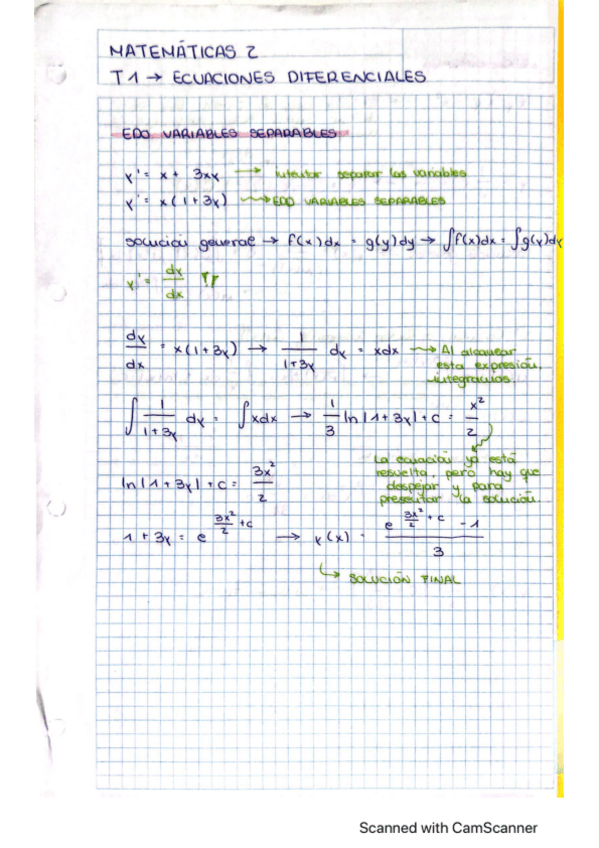 MATEMÁTICAS 2
T1 → ECUACIONES DIFERENCIALES
EDO VARIABLES SEPARABLES
y' = x + 3xy → intentar separar las variables
y' = x(1+3y) → EDO VARIABLES SEPARABLES
solución general → f(x)dx = g(y)dy → ∫f(x)dx = ∫g(y)dy
y' = dy/dx
dy/dx = x(1+3y) → 1/(1+3y) dy = xdx → Al alcanzar
esta expresión,
integramos.
∫ 1/(1+3y) dy = ∫xdx → 1/3 ln|1+3y| + c = x²/2
La ecuación ya está
resuelta, pero hay que
despejar y para
presentar la solución
ln|1+3y| + c = 3x²/2
1+3y = e^(3x²/2 + c) → y(x) = (e^(3x²/2 + c) - 1)/3
SOLUCIÓN FINAL
Scanned with CamScanner